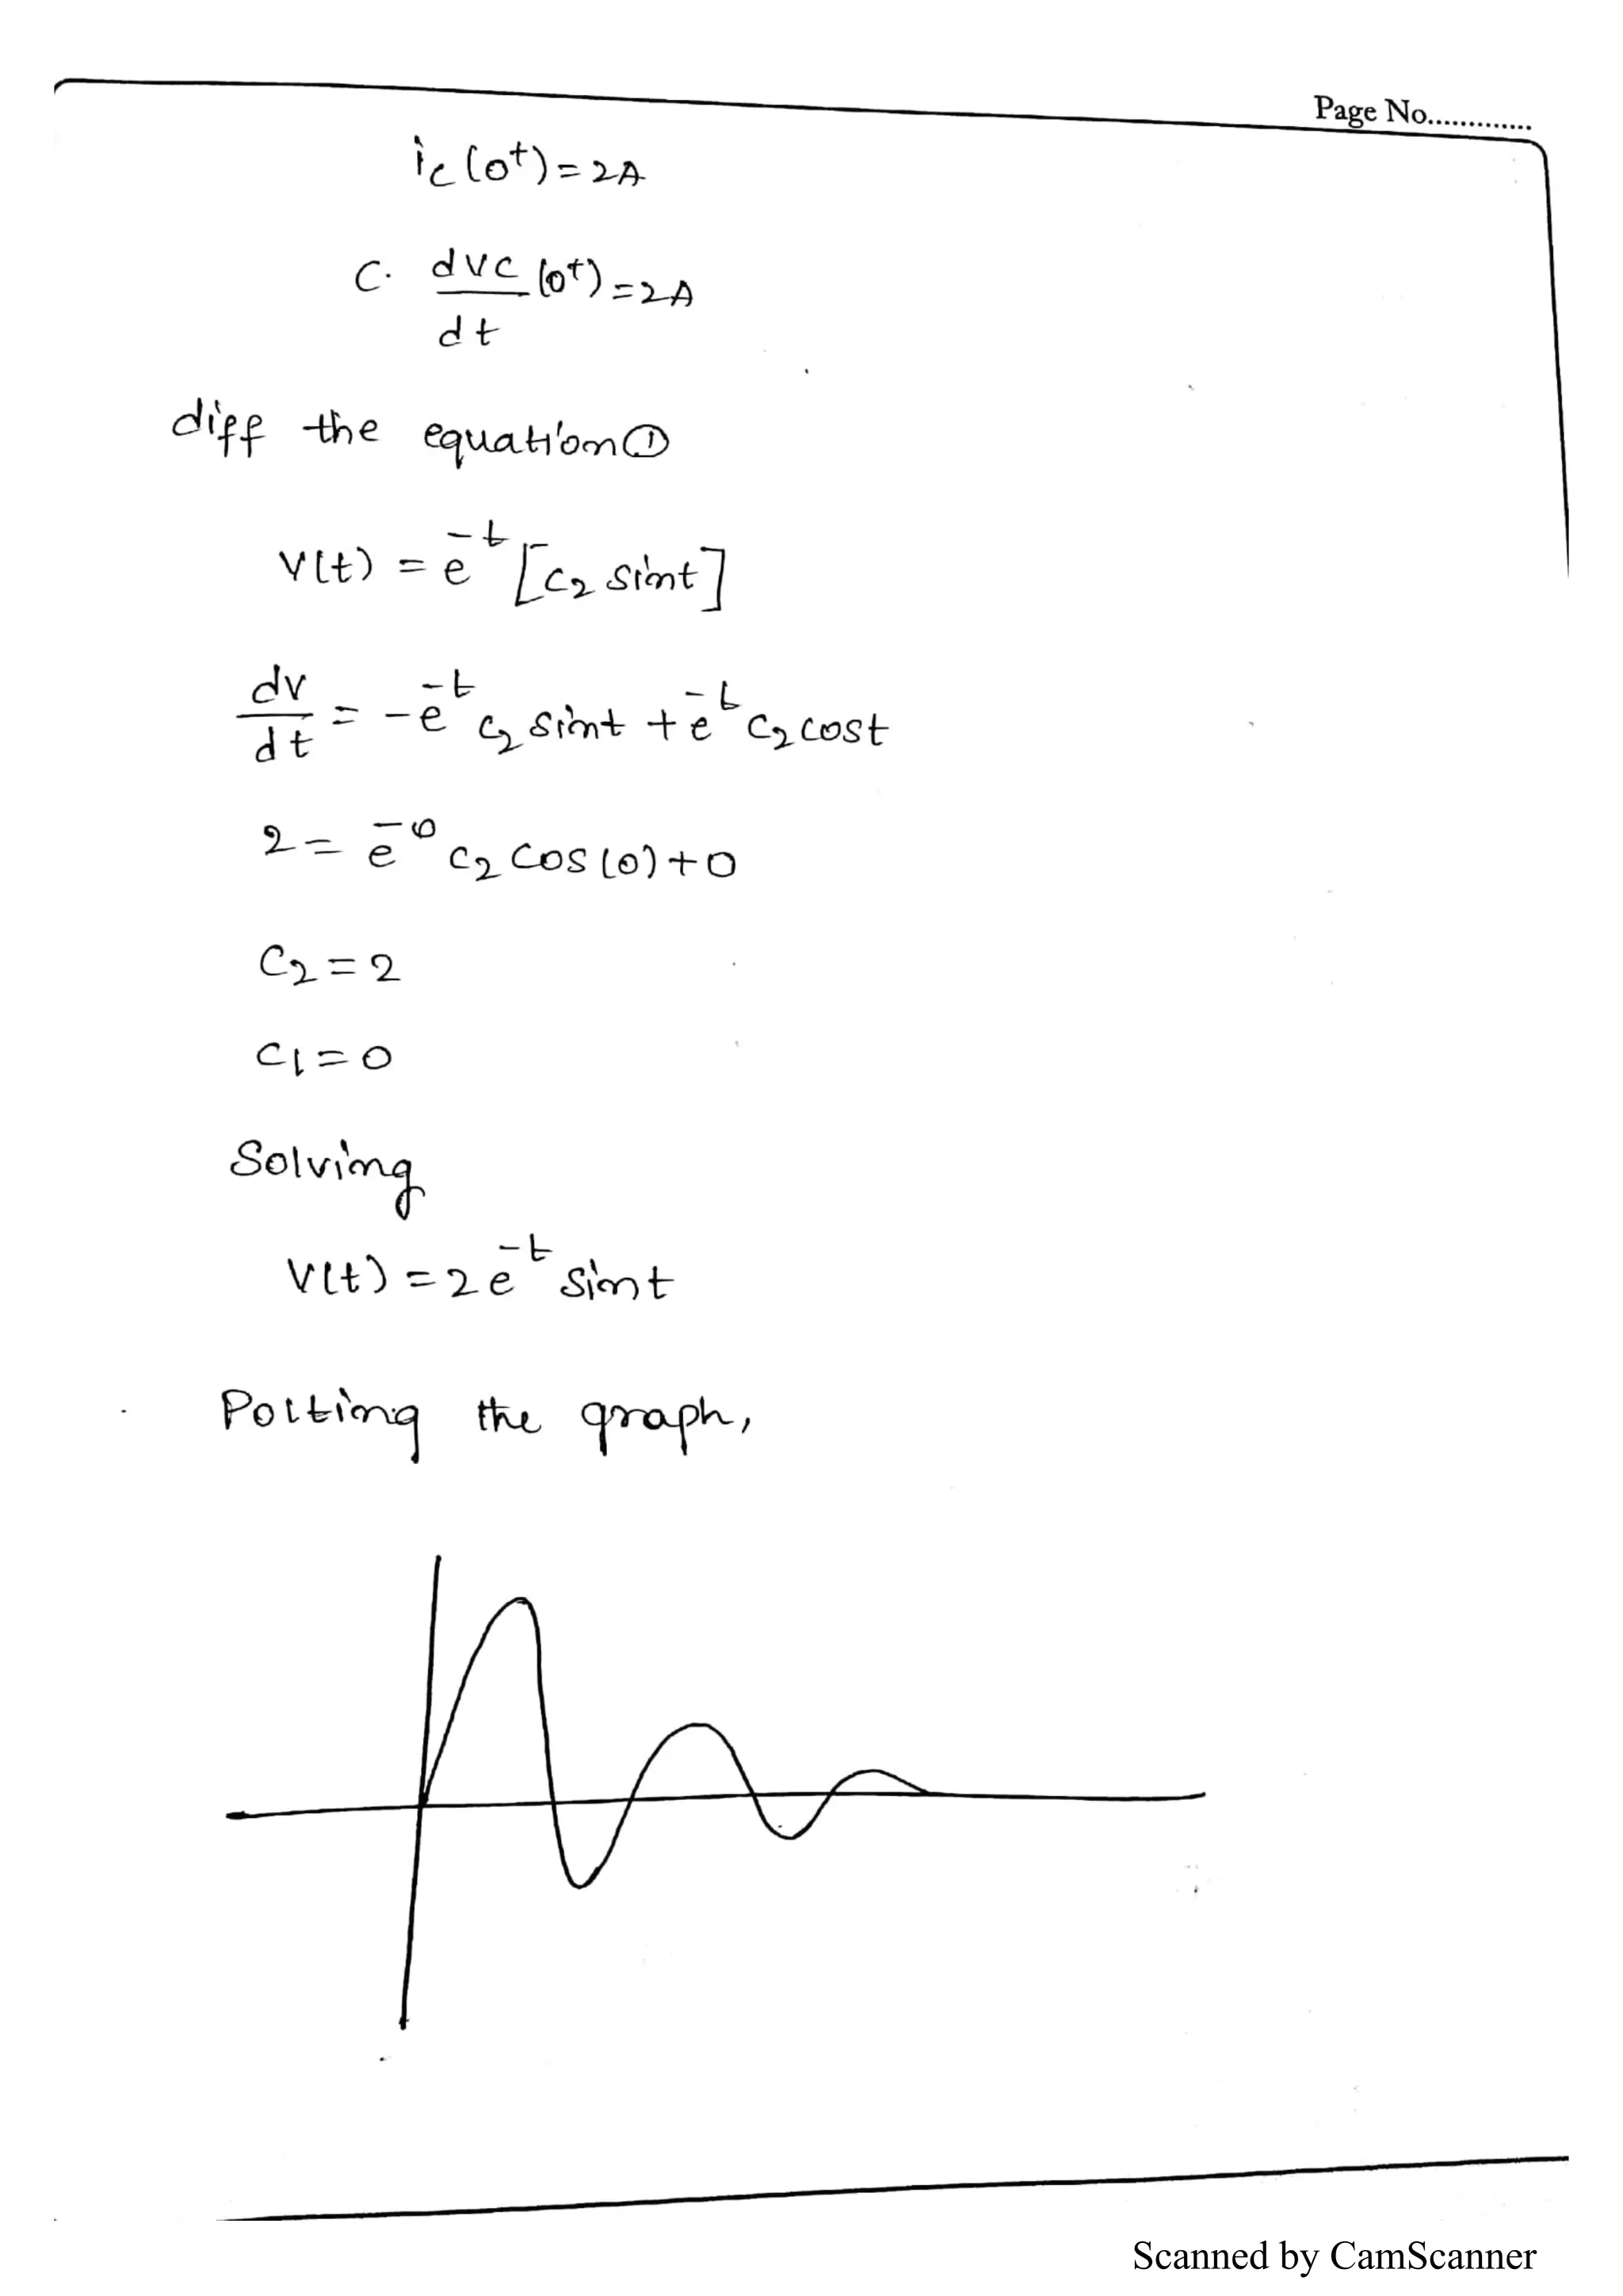 Page No.............
ic(0⁺) = 2A
C. dvc/dt (0⁺) = 2A
diff the equation ①
V(t) = e^-t [c₂ sint]
dv/dt = -e^-t c₂ sint + e^-t c₂ cost
2 = e^-0 c₂ cos(0) + 0
C₂ = 2
C₁ = 0
Solving
V(t) = 2e^-t sint
Potting the graph,
Scanned by CamScanner